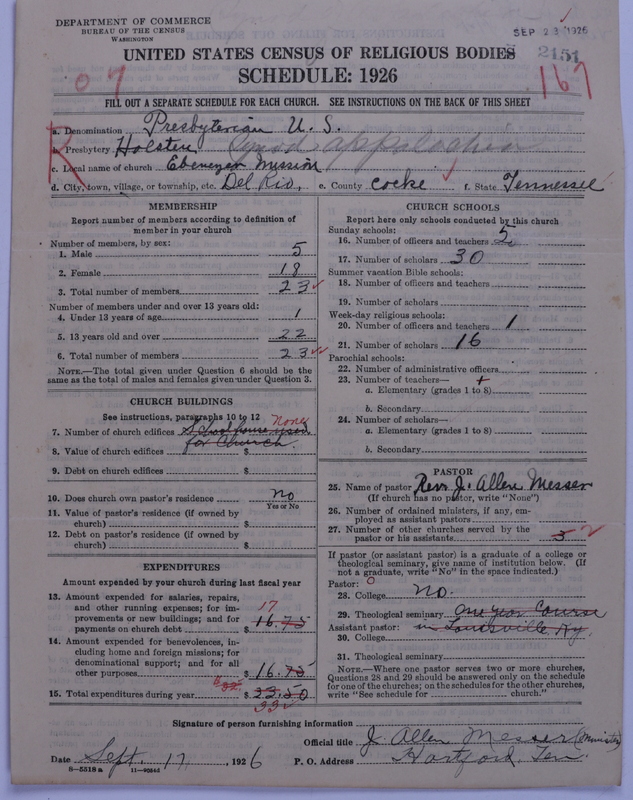 DEPARTMENT OF COMMERCE
BUREAU OF THE CENSUS
WASHINGTON
SEP 23 1926
UNITED STATES CENSUS OF RELIGIOUS BODIES
2151
SCHEDULE: 1926
167
FILL OUT A SEPARATE SCHEDULE FOR EACH CHURCH. SEE INSTRUCTIONS ON THE BACK OF THIS SHEET
a. Denomination Presbyterian U. S.
b. Presbytery Holston Synod appalachia
c. Local name of church Ebenezer Mission
d. City, town, village, or township, etc. Del Rio, e. County Cocke f. State Tennessee
MEMBERSHIP
Report number of members according to definition of
member in your church
Number of members, by sex:
1. Male 5
2. Female 18
3. Total number of members 23
Number of members under and over 13 years old:
4. Under 13 years of age 1
5. 13 years old and over 22
6. Total number of members 23
NOTE.—The total given under Question 6 should be the
same as the total of males and females given under Question 3.
CHURCH BUILDINGS
See instructions, paragraphs 10 to 12
None
7. Number of church edifices Schoolhouse used
for Church.
8. Value of church edifices $
9. Debt on church edifices $
10. Does church own pastor's residence no
Yes or No
11. Value of pastor's residence (if owned by
church) $
12. Debt on pastor's residence (if owned by
church) $
EXPENDITURES
Amount expended by your church during last fiscal year
13. Amount expended for salaries, repairs,
and other running expenses; for im-
provements or new buildings; and for
payments on church debt $ 16.75
17
14. Amount expended for benevolences, in-
cluding home and foreign missions; for
denominational support; and for all
other purposes $ 16.75
15. Total expenditures during year $ 33.50
33
CHURCH SCHOOLS
Report here only schools conducted by this church
Sunday schools:
16. Number of officers and teachers 5
17. Number of scholars 30
Summer vacation Bible schools:
18. Number of officers and teachers
19. Number of scholars
Week-day religious schools:
20. Number of officers and teachers 1
21. Number of scholars 16
Parochial schools:
22. Number of administrative officers
23. Number of teachers—
a. Elementary (grades 1 to 8)
b. Secondary
24. Number of scholars—
a. Elementary (grades 1 to 8)
b. Secondary
PASTOR
25. Name of pastor Rev. J. Allen Messer
(If church has no pastor, write "None")
26. Number of ordained ministers, if any, em-
ployed as assistant pastors
27. Number of other churches served by the
pastor or his assistants 3 2
If pastor (or assistant pastor) is a graduate of a college or
theological seminary, give name of institution below. (If
not a graduate, write "No" in the space indicated.)
Pastor: 0
28. College no.
29. Theological seminary One year Course
Assistant pastor: in Louisville, Ky.
30. College
31. Theological seminary
NOTE.—Where one pastor serves two or more churches,
Questions 28 and 29 should be answered only on the schedule
for one of the churches; on the schedules for the other churches,
write "See schedule for church."
Signature of person furnishing information
Official title J. Allen Messer (Minister)
Date Sept. 17, 1926 P. O. Address Hartford, Ten.
8—5518a 11—9034d